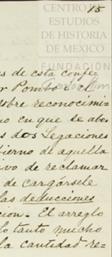 CENTRO DE 75
ESTUDIOS
DE HISTORIA
DE MÉXICO
FUNDACIÓN
as de esta confe
r Pombo
obre reconocimie
no en que se abr
as dos Legaciones
bierno de aquella
ivo de reclamar
de cargársele
las deducciones
cion. El arreglo
lo tanto mucho
la cantidad rec